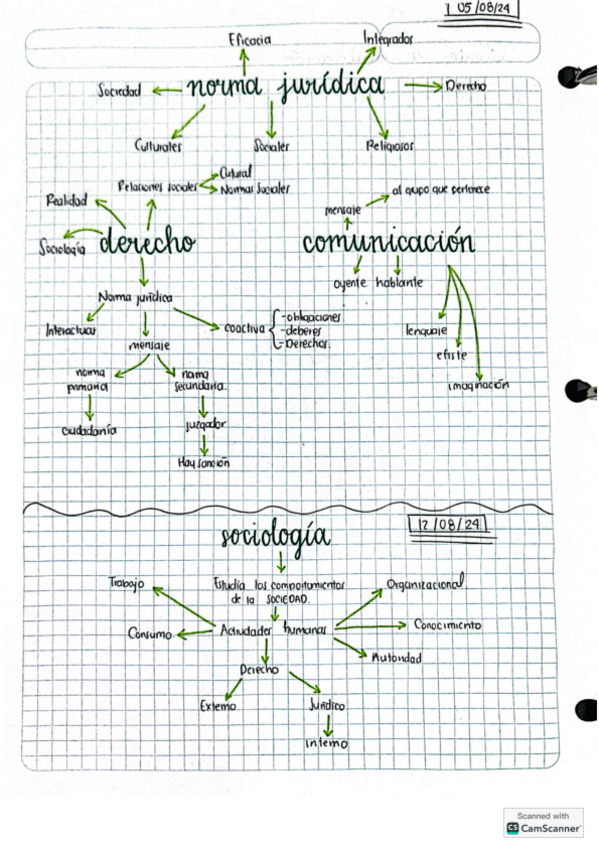 05/08/24
Eficacia
Integrados
Sociedad
norma jurídica
Derecho
Culturales
Sociales
Religiosos
Cutural
Relaciones sociales
Normas Sociales
Realidad
al qupo que pertenece
mensaje
Sociología
derecho
comunicación
oyente hablante
Norma jurídica
Interactuar
coactiva
-obligaciones
-deberes
-Derechos.
lenguaje
mensaje
efiste
norma
primaria
norma
secundaria.
imaginación
ciudadanía
juzgador
Hay sanción
12/08/24
sociología
Trabajo
Estudia los comportamientos
de la SOCIEDAD.
Organizacional
Consumo
Actividades humanas
Conocimiento
Autoridad
Derecho
Externo
Jurídico
interno
Scanned with
CS CamScanner